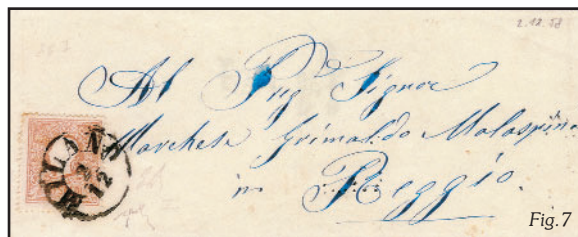 2.12.58
Al Preg Signor
Marchese Grimaldo Malaspina
in Reggio.
MILANO
2
12
Fig.7